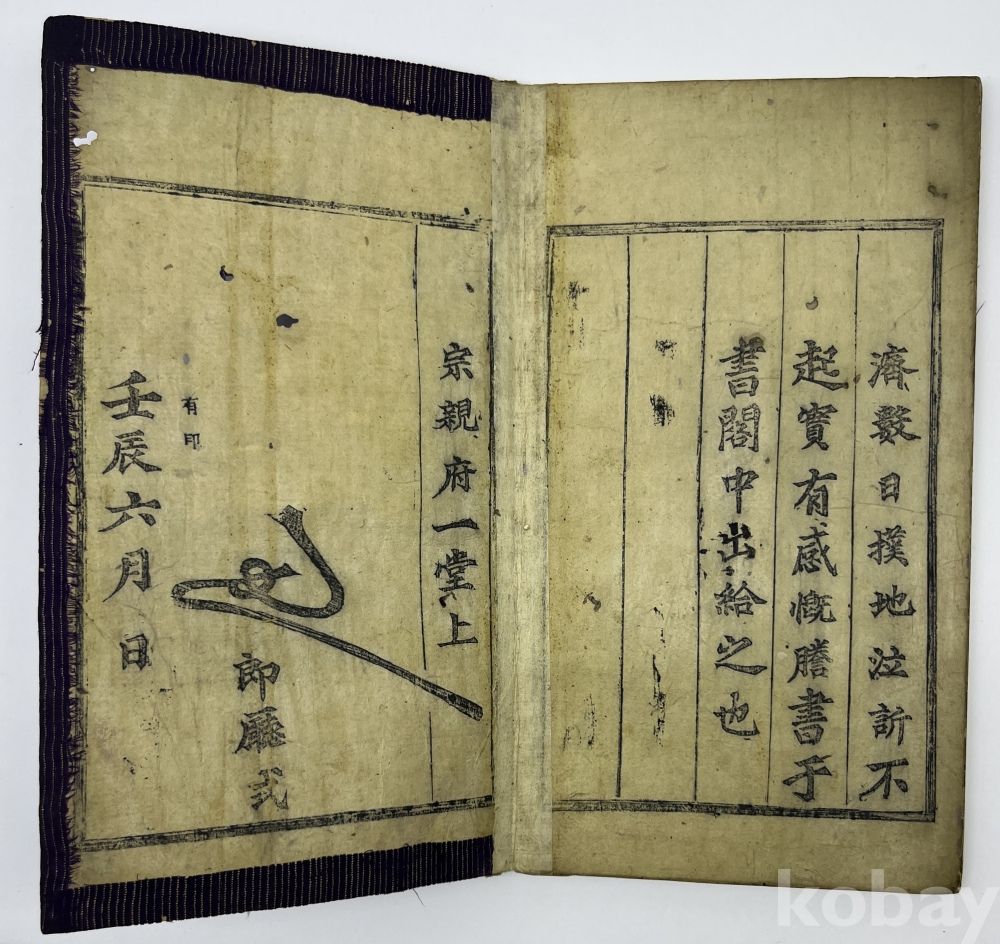 濟數日撲地泣訴不
起實有感慨謄書于
書閣中出給之也
宗親府一堂上
郎廳
有印
壬辰六月 日
kobay